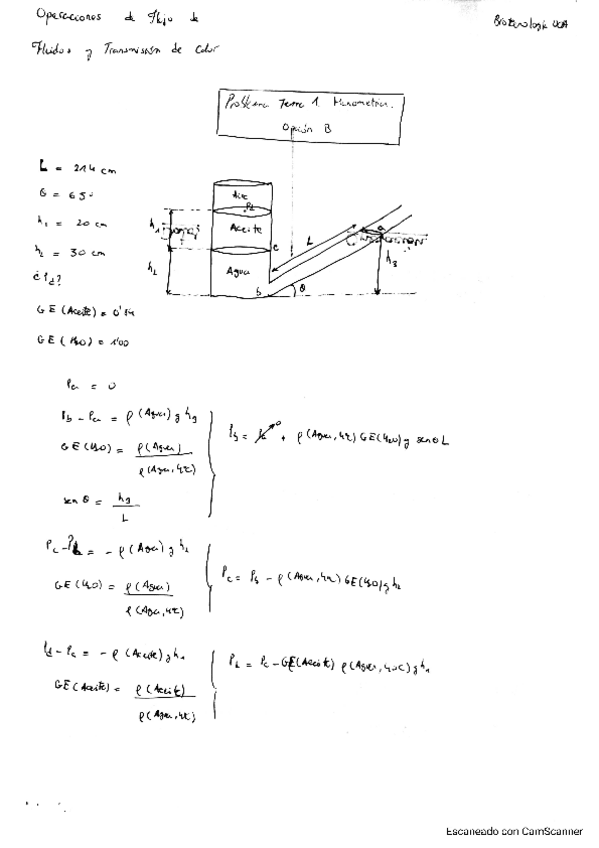 Operaciones de Flujo de
Biotecnología UCA
Fluidos y Transmisión de Calor
Problema Tema 1. Manometría.
Opción B
L = 214 cm
θ = 65º
h₁ = 20 cm
h₂ = 30 cm
¿Pd?
GE (Aceite) = 0'84
GE (H₂O) = 1'00
Aire
Pd
Aceite
Agua
h₁
h₂
c
L
a
h₃
b
θ
Pa = 0
Pb - Pa = ρ (Agua) g h₃
GE (H₂O) = ρ (Agua)
ρ (Agua, 4ºC)
sen θ = h₃
L
Pb = Pa⁰ + ρ (Agua, 4ºC) GE (H₂O) g sen θ L
Pc - Pb = - ρ (Agua) g h₂
GE (H₂O) = ρ (Agua)
ρ (Agua, 4ºC)
Pc = Pb - ρ (Agua, 4ºC) GE (H₂O) g h₂
Pd - Pc = - ρ (Aceite) g h₁
GE (Aceite) = ρ (Aceite)
ρ (Agua, 4ºC)
Pd = Pc - GE (Aceite) ρ (Agua, 4ºC) g h₁
Escaneado con CamScanner